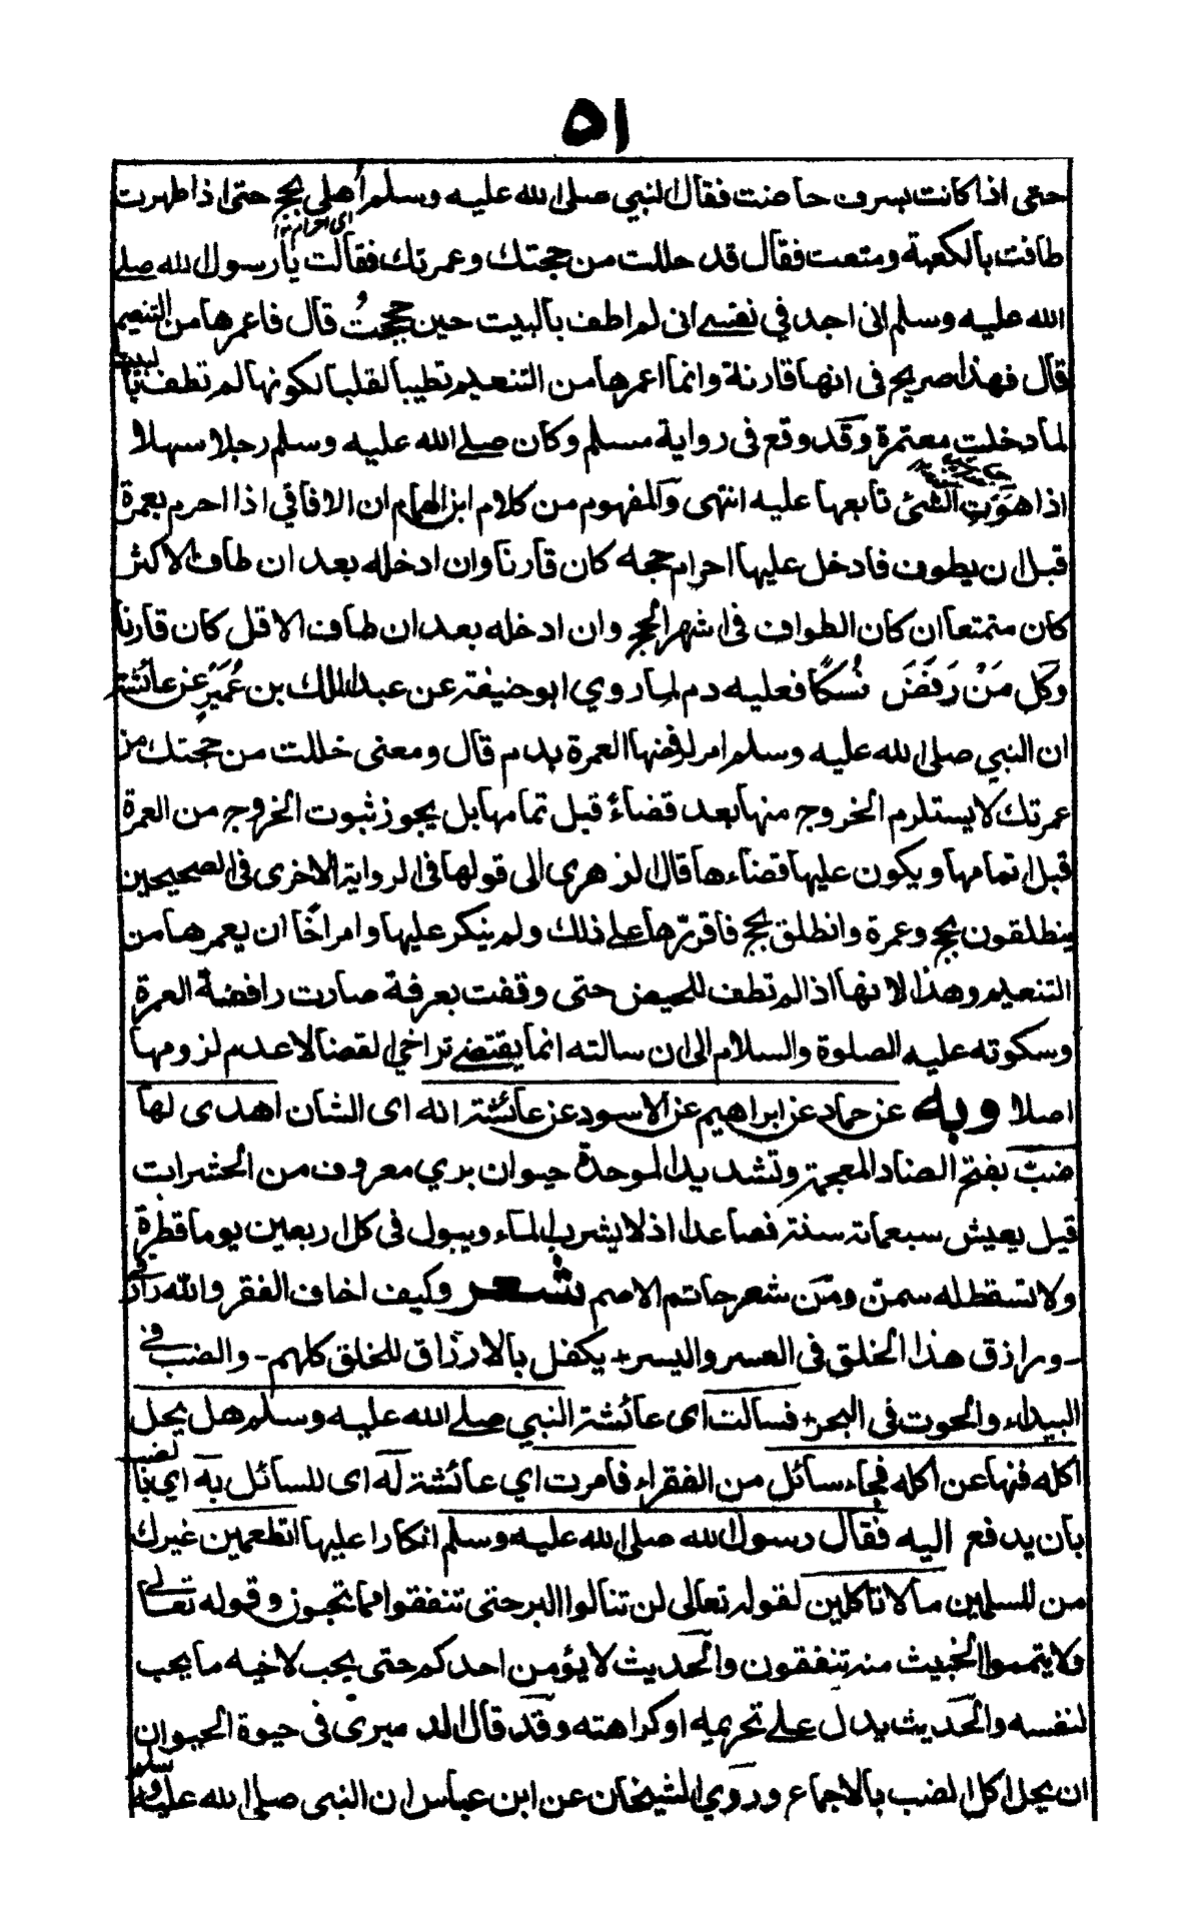 ٥١
حتى اذا كانت بسرف حاضت فقال النبي صلى الله عليه وسلم أهلي بحج حتى اذا طهرت
اى احرام
طافت بالكعبة وسعت فقال قد حللت من حجتك وعمرتك فقالت يا رسول الله صلى
الله عليه وسلم انى اجد في نفسى انى لم اطف بالبيت حين حججتُ قال فاعمرها من التنعيم
قال فهذا صريح فى انها قارنة وانما اعمرها من التنعيم تطييبا لقلبها لكونها لم تطف بالبيت
لما دخلت معتمرة وقد وقع فى رواية مسلم وكان صلى الله عليه وسلم رجلا سهلا
اذا هَوِيَتِ الشئ تابعها عليه انتهى والمفهوم من كلام ابن الهمام ان الافاقي اذا احرم بعمرة
قبل ان يطوف فادخل عليها احرام حجه كان قارنا وان ادخله بعد ان طاف الاكثر
كان متمتعا ان كان الطواف فى اشهر الحج وان ادخله بعد ان طاف الاقل كان قارنا
وَكل مَنْ رَفَضَ نُسُكًا فعليه دم لما روي ابو حنيفة عن عبد الملك بن عُمَيْرٍ عن عائشة
ان النبي صلى الله عليه وسلم امر لرفضها العمرة بدم قال ومعنى حللت من حجتك من
عمرتك لا يستلزم الخروج منها بعد قضاءٔ قبل تمامها بل يجوز ثبوت الخروج من العمرة
قبل اتمامها ويكون عليها قضاءها قال الزهرى الى قولها فى الرواية الاخرى فى الصحيحين
ينطلقون بحج وعمرة وانطلق بحج فاقرّها على ذلك ولم ينكر عليها وامر اخًا ان يعمرها من
التنعيم وهذا لانها اذا لم تطف للحيض حتى وقفت بعرفة صارت رافضة العمرة
وسكوته عليه الصلوة والسلام الى ان سالته انما يقتضى تراخي القضا لا عدم لزومها
اصلا وبه عن حماد عن ابراهيم عن الاسود عن عائشة انه اى الشان اهدى لها
ضبّ بفتح الضاد المعجمة وتشديد الموحدة حيوان بري معروف من الحشرات
قيل يعيش سبعمائة سنة فصاعدا اذ لا يشرب الماء ويبول فى كل اربعين يوما قطرة
ولا تسقط له سنّ ومن شعر حاتم الاصم شعر وكيف اخاف الفقر والله رازقى
- ورازق هذا الخلق فى العسر واليسر + يكفل بالارزاق للخلق كلهم - والضب فى
البيداء والحوت فى البحر + فسالت اى عائشة النبي صلى الله عليه وسلم هل يحل
اكله فنها عن اكله فجاء سائل من الفقراء فامرت اي عائشة له اى للسائل به اي بالضب
بان يدفع اليه فقال رسول الله صلى الله عليه وسلم انكارا عليها اتطعمين غيرك
من المسلمين ما لا تاكلين لقوله تعالى لن تنالوا البر حتى تنفقوا مما تحبون وقوله تعالى
ولا يتمموا الخبيث منه تنفقون والحديث لا يؤمن احدكم حتى يحب لاخيه ما يحب
لنفسه والحديث يدل على تحريمه او كراهته وقد قال الدميرى فى حيوة الحيوان
ان يحل اكل الضب بالاجماع وروي الشيخان عن ابن عباس ان النبي صلى الله عليه وسلم